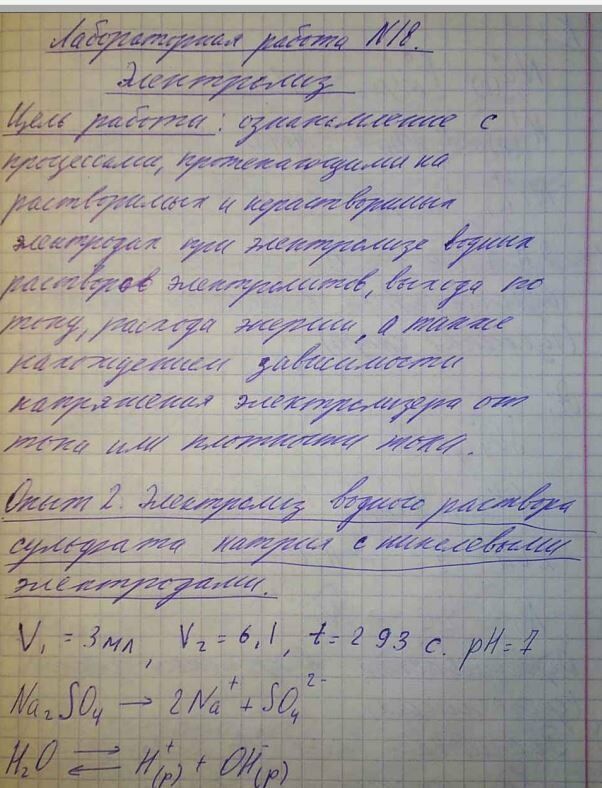 Лабораторная работа N18.
Электролиз
Цель работы: ознакомление с
процессами, протекающими на
растворимых и нерастворимых
электродах при электролизе водных
растворов электролитов, выхода по
току, расхода энергии, а также
нахождением зависимости
напряжения электролизера от
тока или плотности тока.
Опыт 2. Электролиз водного раствора
сульфата натрия с никелевыми
электродами.
V₁ = 3 мл, V₂ = 6,1, t = 293 с. pH = 7
Na₂SO₄ → 2Na⁺ + SO₄²⁻
H₂O ⇄ H⁺(р) + OH⁻(р)